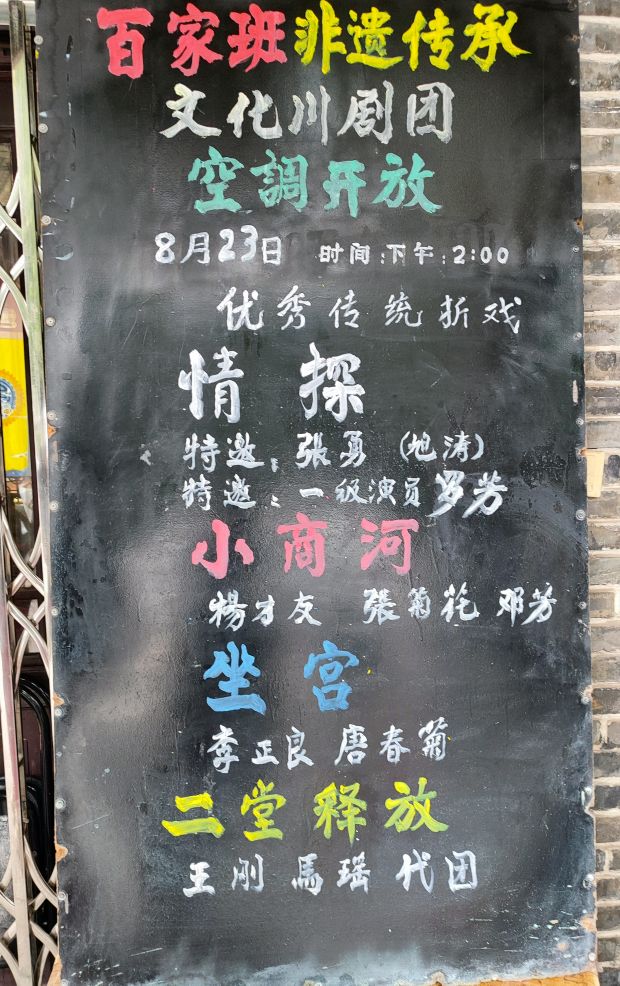 百家班非遗传承
文化川剧团
空調开放
8月23日 时间:下午:2:00
优秀传统折戏
情 探
特邀:張勇 (旭涛)
特邀:一级演员罗芳
小商河
楊才友 張菊花 邓芳
坐宫
李正良 唐春菊
二堂释放
王刚 馬瑶 代团